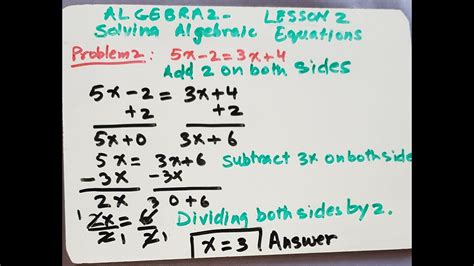 ALGEBRA2- LESSON 2
Solving Algebraic Equations
Problem2: 5x-2=3x+4
Add 2 on both sides
5x-2 = 3x+4
+2 +2
5x+0 3x+6
5x = 3x+6 Subtract 3x on both side
-3x -3x
2x 30+6
2x/2 = 6/2 Dividing both sides by 2.
x=3 Answer